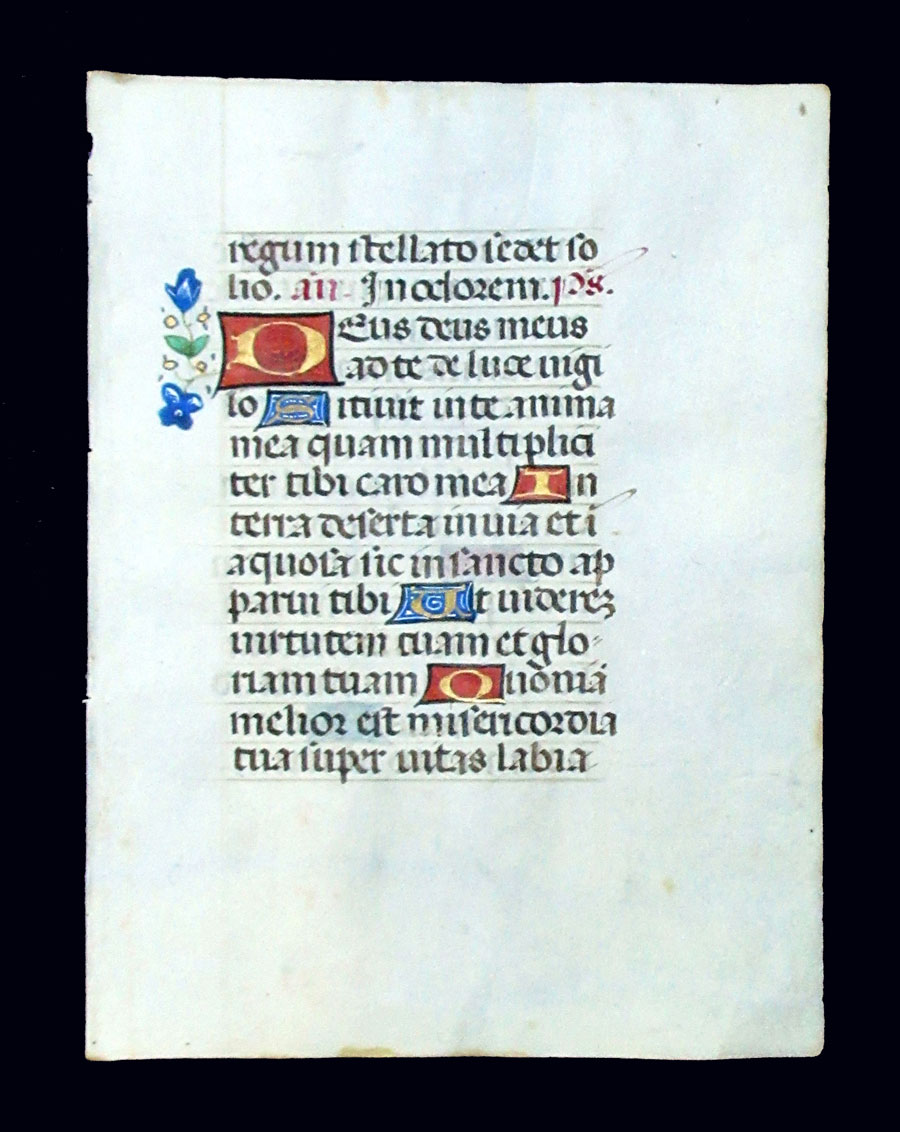 regum stellato sedet so
lio. añ. In odorem. ps.
Deus deus meus
ad te de luce vigi
lo Sitivit in te anima
mea quam multiplici
ter tibi caro mea In
terra deserta invia et i
aquosa sic in sancto ap
parui tibi Ut viderez
virtutem tuam et glo-
riam tuam Quoniã
melior est misericordia
tua super vitas labia